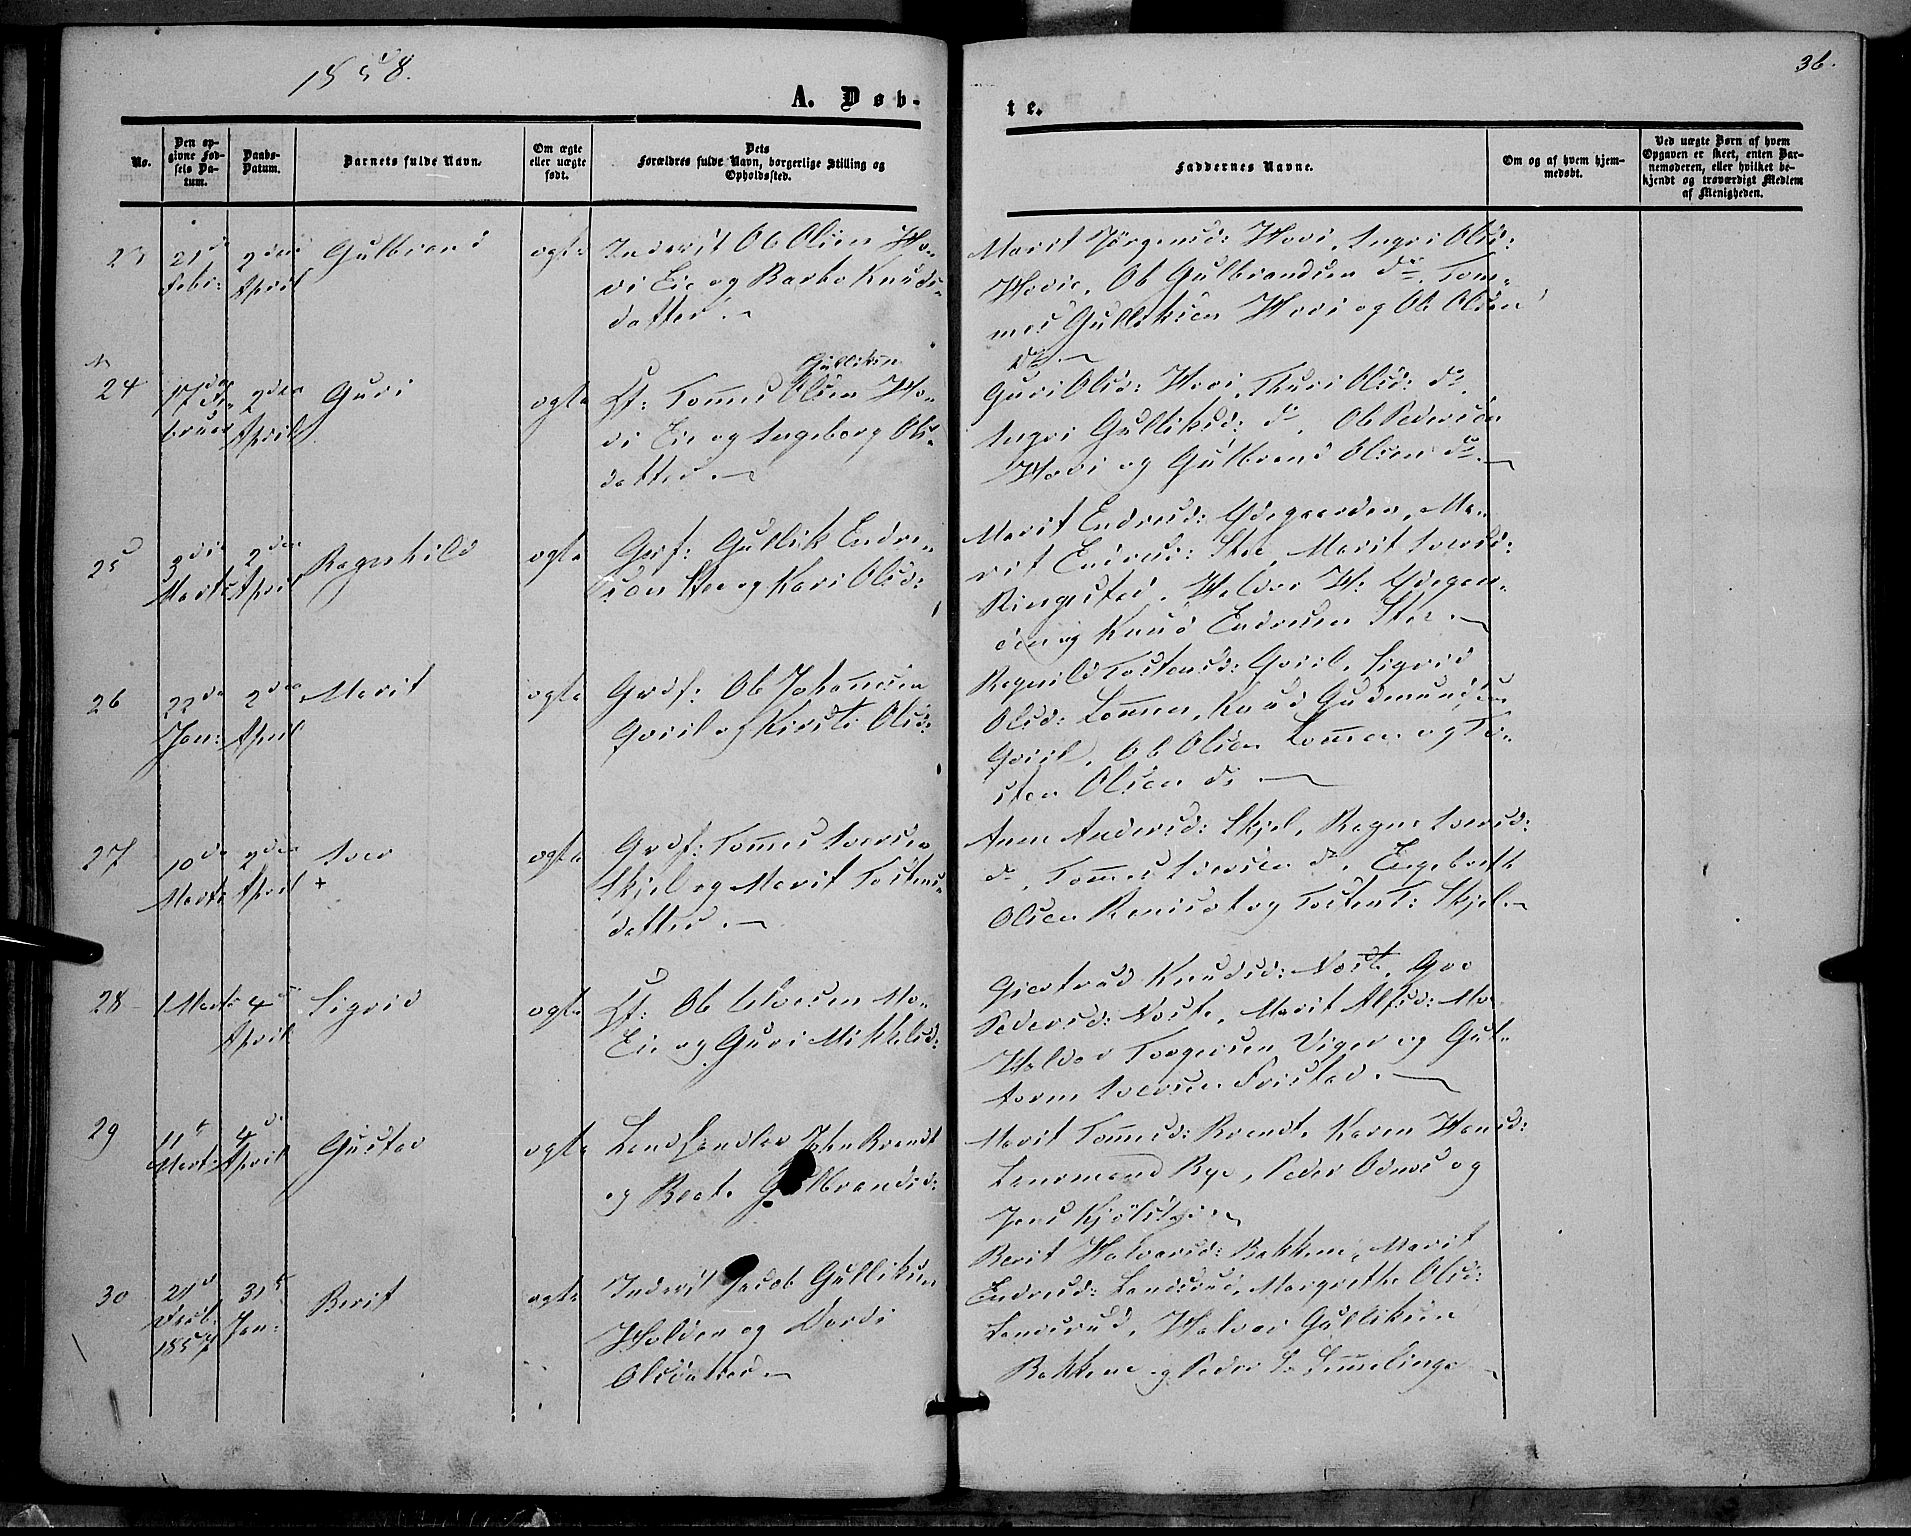 1858.
36.
A. Døb-
te.
No.
Den op-
givne Fød-
sels Da-
tum.
Daabs-
Datum.
Barnets fulde Navn.
Om ægte
eller uægte
født.
Dets
Forældres fulde Navn, borgerlige Stilling og
Opholdssted.
Faddernes Navne.
Om og af hvem hjem-
medøbt.
Ved uægte Børn af hvem
Opgaven er skeet, enten Bar-
nemoderen, eller hvilket be-
kjendt og troværdigt Medlem
af Menigheden.
23
21de
Febr:
2den
April
Gulbrand
ægte
Inderst Ole Olsen Ho-
vi Eie og Barbo Knuds-
datter.
Marit Jørgensd: Hovi, Ingri Olsd:
Hovie, Ole Gulbrandsen do, Tom-
mes Gulliksen Hovi og Ole Olsen
do.
24
17de Fe-
bruar
2den
April
Guri
ægte
Gulliksen
Hf: Tommes Olsen Ho-
vi Eie og Ingeborg Ols-
datter.
Guri Olsd: Hovi, Thuri Olsd: do,
Ingri Gulliksd: do, Ole Pedersen
Hovi og Gulbrand Olsen do.
25
3die
Marts
2den
April
Ragnhild
ægte
Grdf: Gullik Endre-
sen Ste og Kari Olsd:
Marit Endresd: Ødegaarden, Ma-
rit Endresd: Ste, Marit Iversd:
Ringestad, Haldor H. Ødegaar-
den og Knud Endresen Ste.
26
22de
Jan:
2den
April
Marit
ægte
Grdf: Ole Johannesen
Qviil og Kirsti Olsd:
Ragnild Tostensd: Qviil, Sigrid
Olsd: Lommen, Knud Gudmundsen
Qviil, Ole Olsen Lommen og To-
sten Olsen do
27
10de
Marts
2den
April
Iver
+
ægte
Grdf: Tommes Iversen
Skjel og Marit Tostens-
datter.
Anne Andersd: Skjel, Ragne Iversd:
do, Tommes Iversen do, Engebreth
Olsen og Tosten T: Skjel.
28
1 Marts
4de
April
Sigrid
ægte
Hf: Ole Mo-
Eie og Guri Mikkelsd:
Giertrud Knudsd: Noste, Goe
Pedersd: Noste, Marit Alfsd: Mo
Haldor Torgersen Viger og Gut-
torm Iversen Fristad.
29
11te
Marts
4de
April
Gustav
ægte
Landhandler John Brandt
og Beate Gulbrandsd:
Marit Tommesd: Brandt, Karen Hansd:
Lensmand Rye, Peder Odnes og
Jens
30
21de
Decbr:
1857
31te
Jan:
Berit
ægte
Inderst Jacob Gulliksen
Holden og Dordi
Olsdatter.
Berit Halvorsd: Bakkene, Marit
Endresd: Landsrud, Margrethe Olsd:
Landsrud, Halvor Gulliksen
Bakkene og Peder